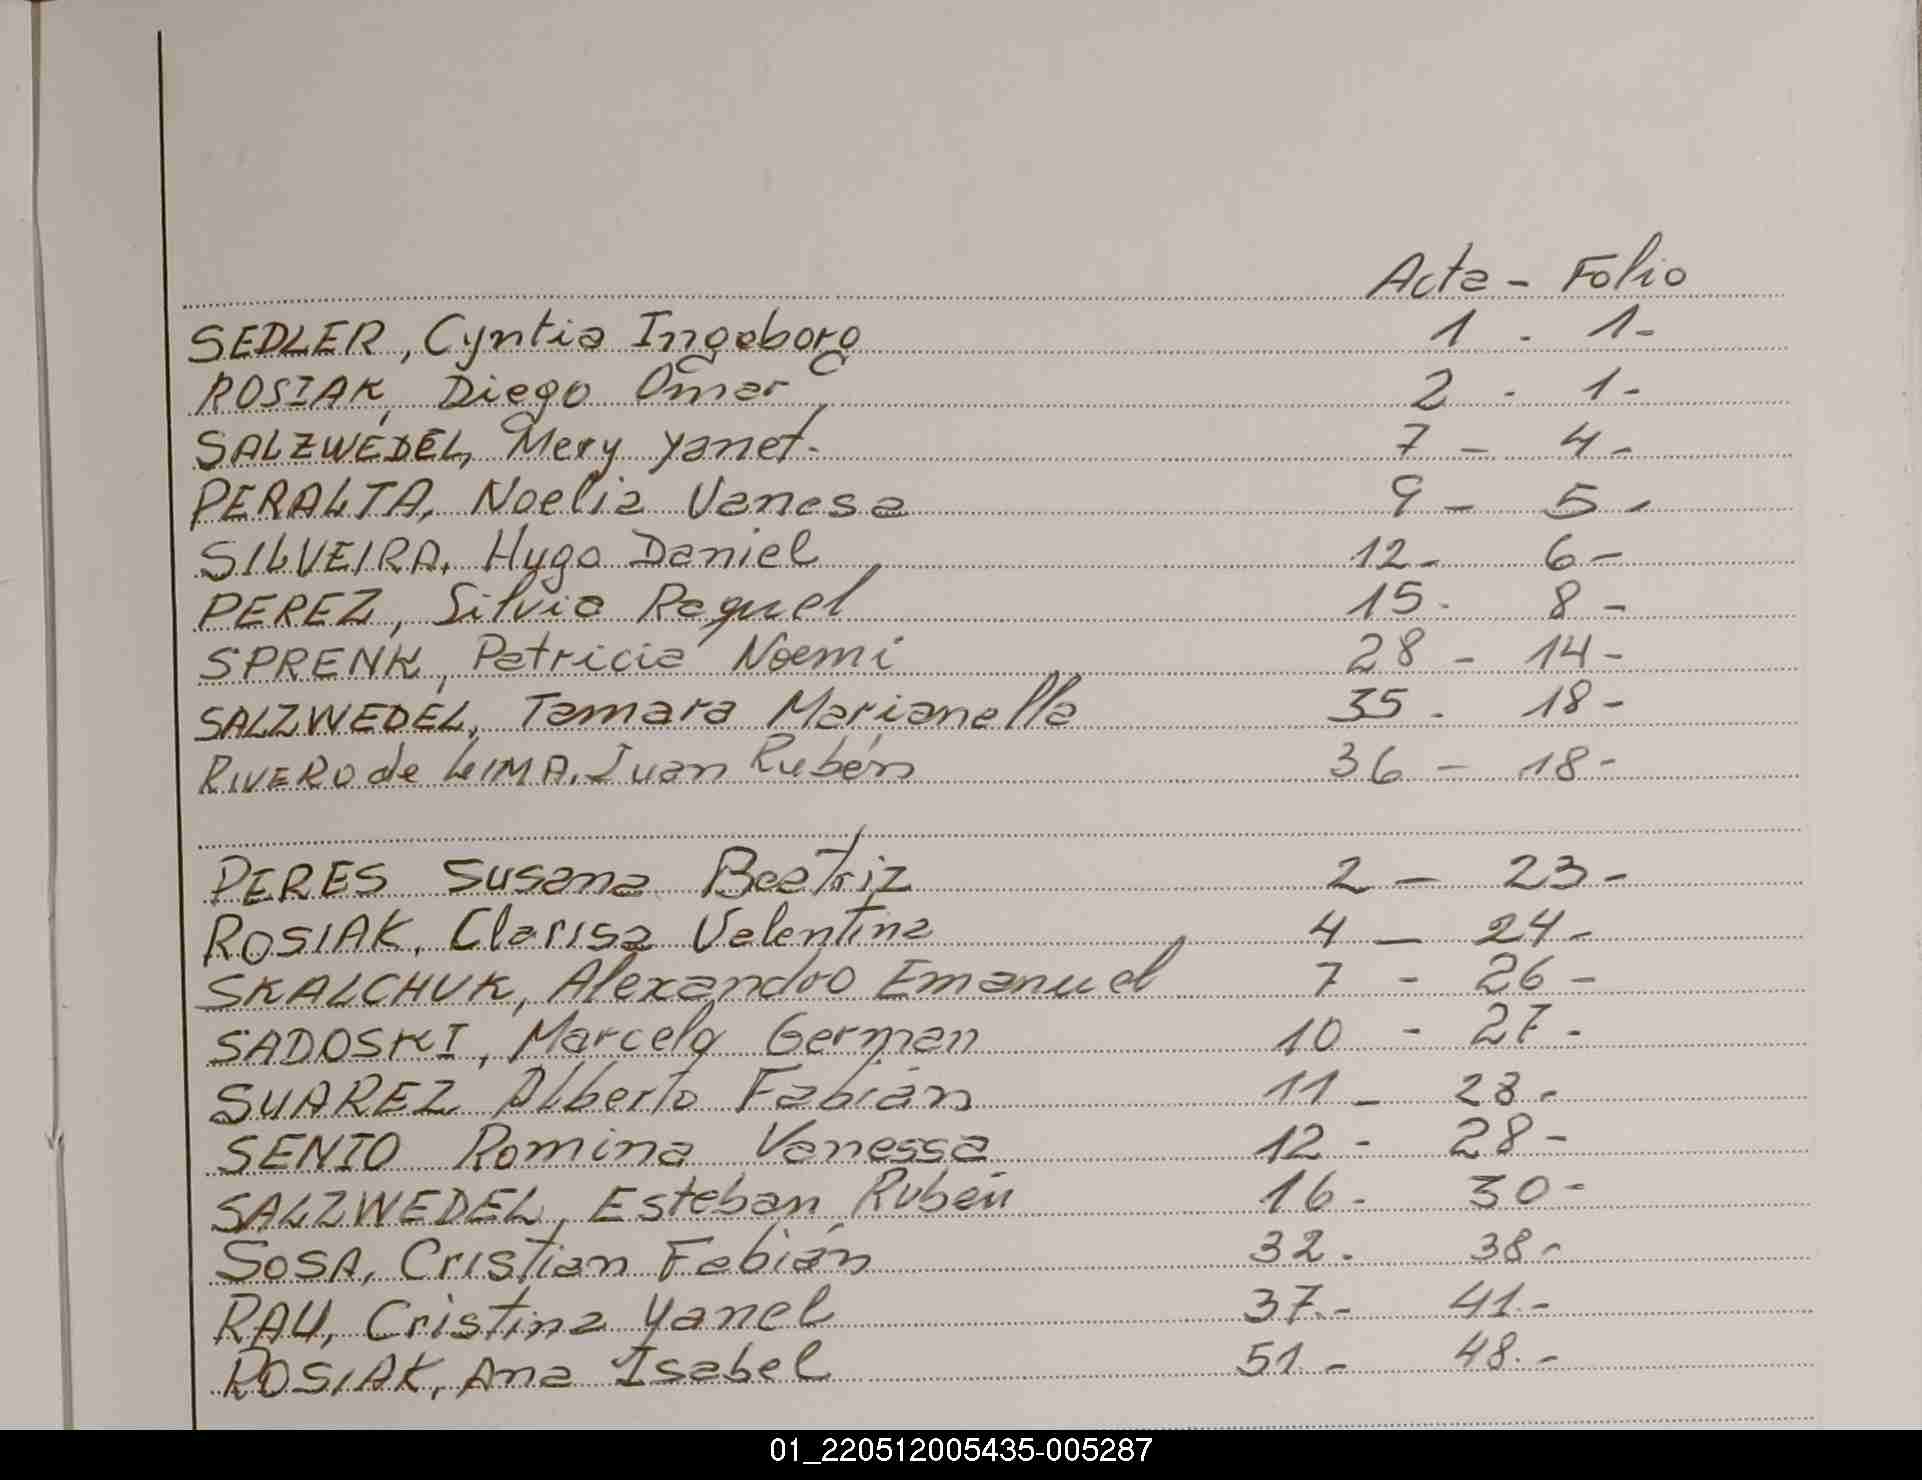 Acta - Folio
SEDLER, Cyntia Ingeborg 1 - 1-
ROSIAK, Diego Omar 2 - 1-
SALZWEDEL, Mery Yanet. 7 - 4-
PERALTA, Noelia Vanesa 9 - 5-
SILVEIRA, Hugo Daniel 12- 6-
PEREZ, Silvia Raquel 15- 8-
SPRENK, Patricia Noemi 28 - 14-
SALZWEDEL, Tamara Marianella 35- 18-
RIVERO de LIMA, Juan Rubén 36 - 18-
PERES Susana Beatriz 2 - 23-
ROSIAK, Clarisa Valentina 4 - 24-
SKALCHUK, Alexandro Emanuel 7 - 26-
SADOSKI, Marcelo German 10 - 27-
SUAREZ Alberto Fabián 11 - 28-
SENIO Romina Vanessa 12- 28-
SALZWEDEL, Esteban Rubén 16- 30-
SOSA, Cristian Fabián 32- 38-
RAU, Cristina Yanel 37.- 41.-
ROSIAK, Ana Isabel 51.- 48.-
01_220512005435-005287